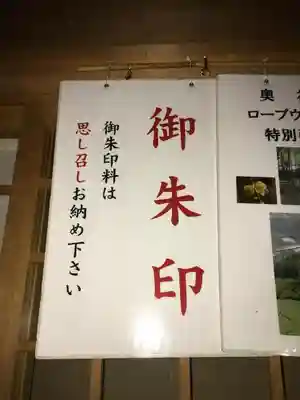 奥
ローブウ
特別
御朱印
御朱印料は
思し召しお納め下さい